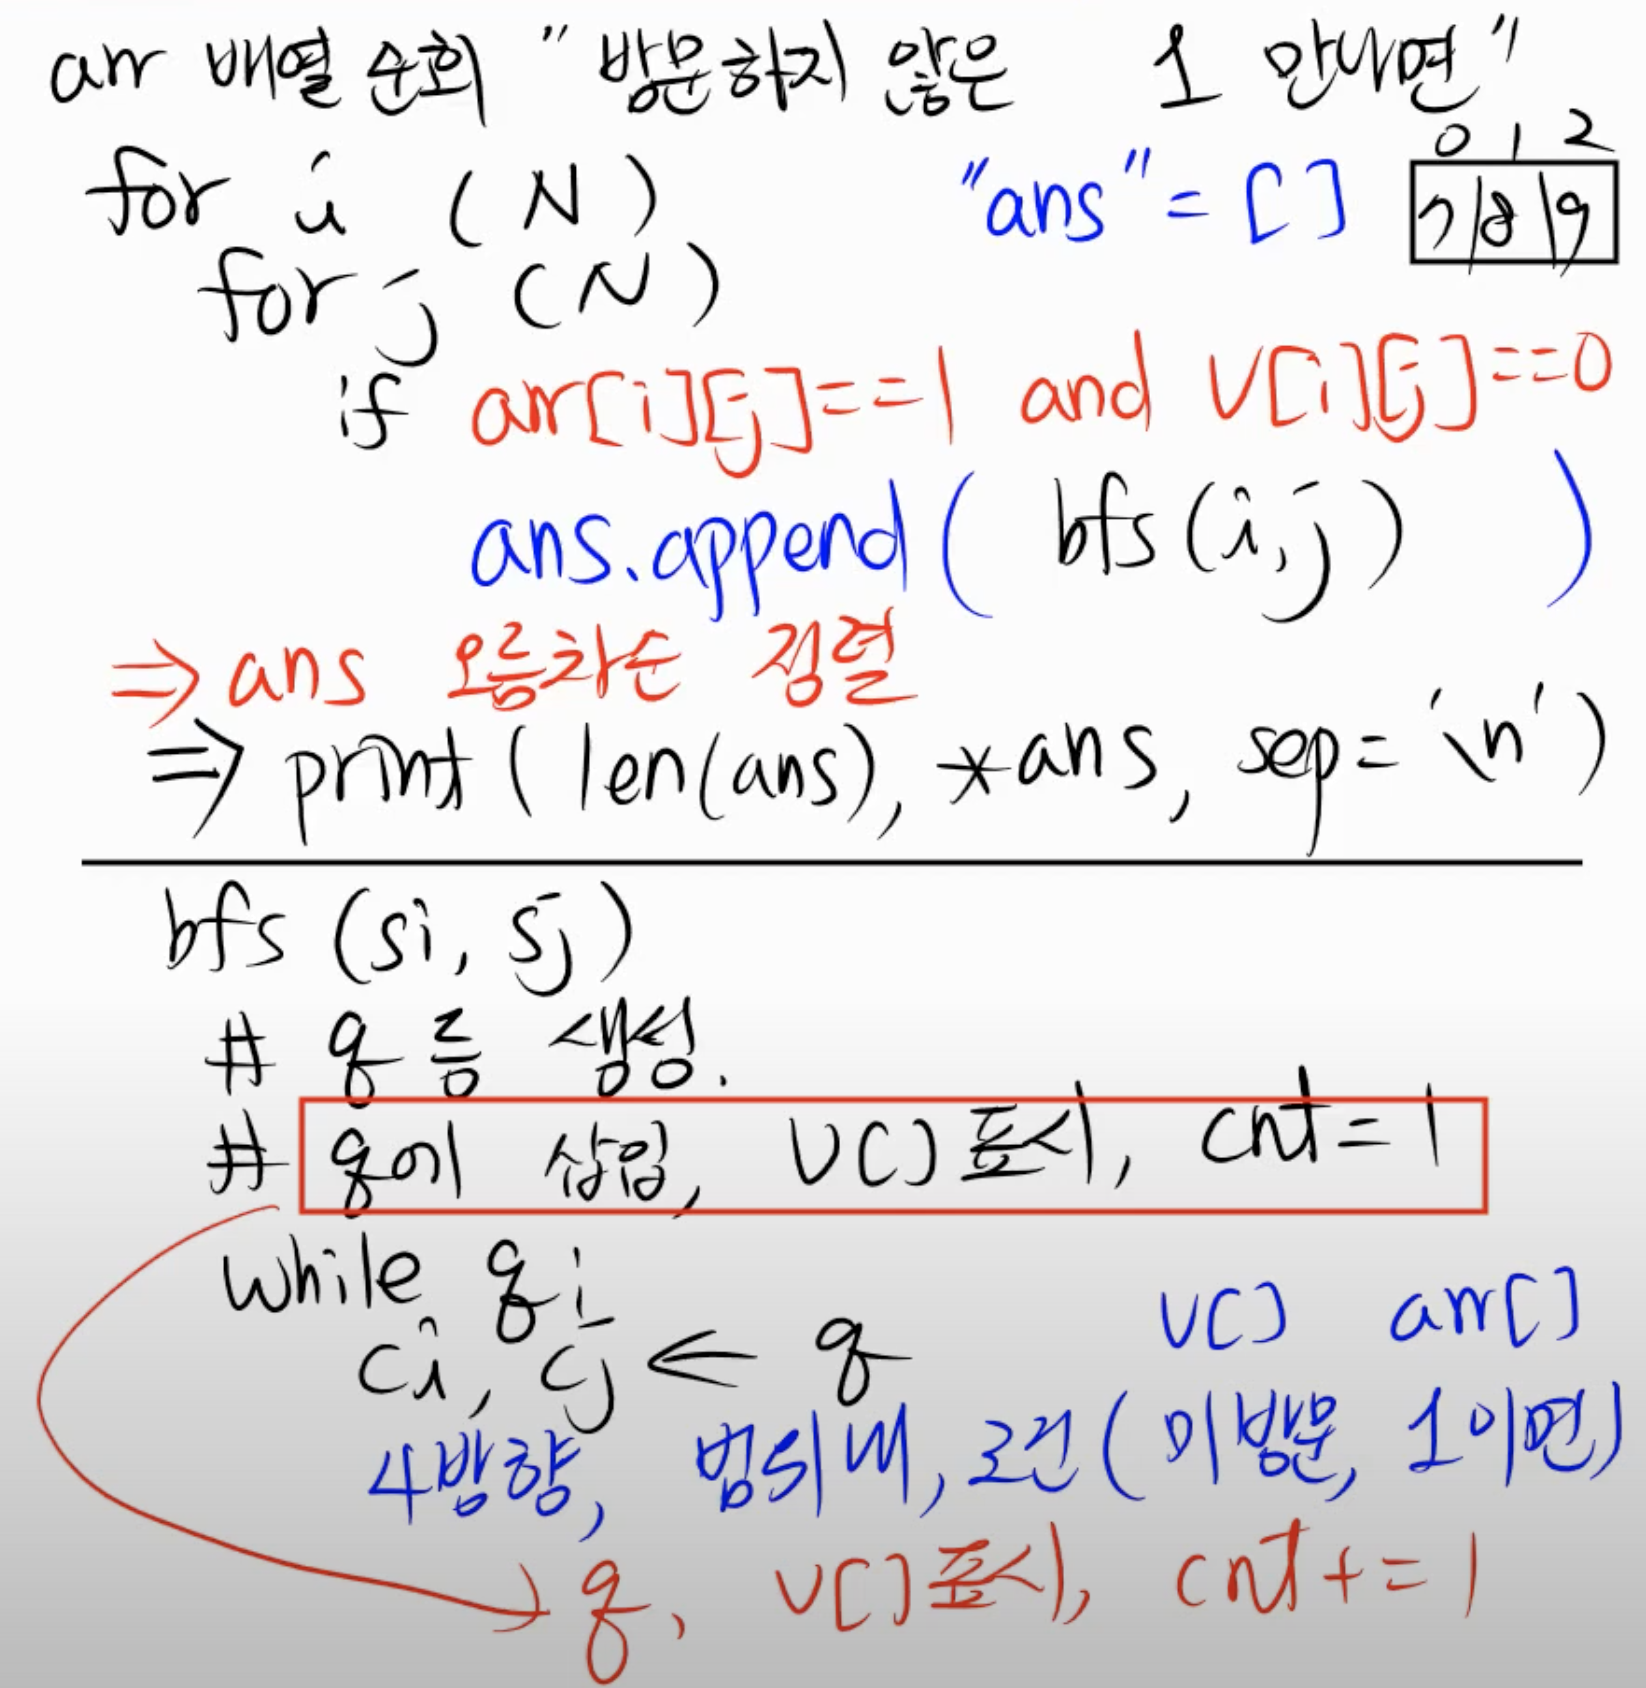 arr 배열 순회 "방문하지 않은 1 만나면"
for i (N) "ans" = [ ] 0 1 2
7 8 9
for j (N)
if arr[i][j]==1 and v[i][j]==0
ans.append( bfs(i,j) )
⇒ ans 오름차순 정렬
⇒ print ( len(ans), *ans, sep='\n')
bfs (si, sj)
# q 등 생성.
# q에 삽입, v[] 표시, cnt=1
while q:
ci, cj ← q v[] arr[]
4방향, 범위내, 조건(미방문, 1이면)
q, v[] 표시, cnt+=1